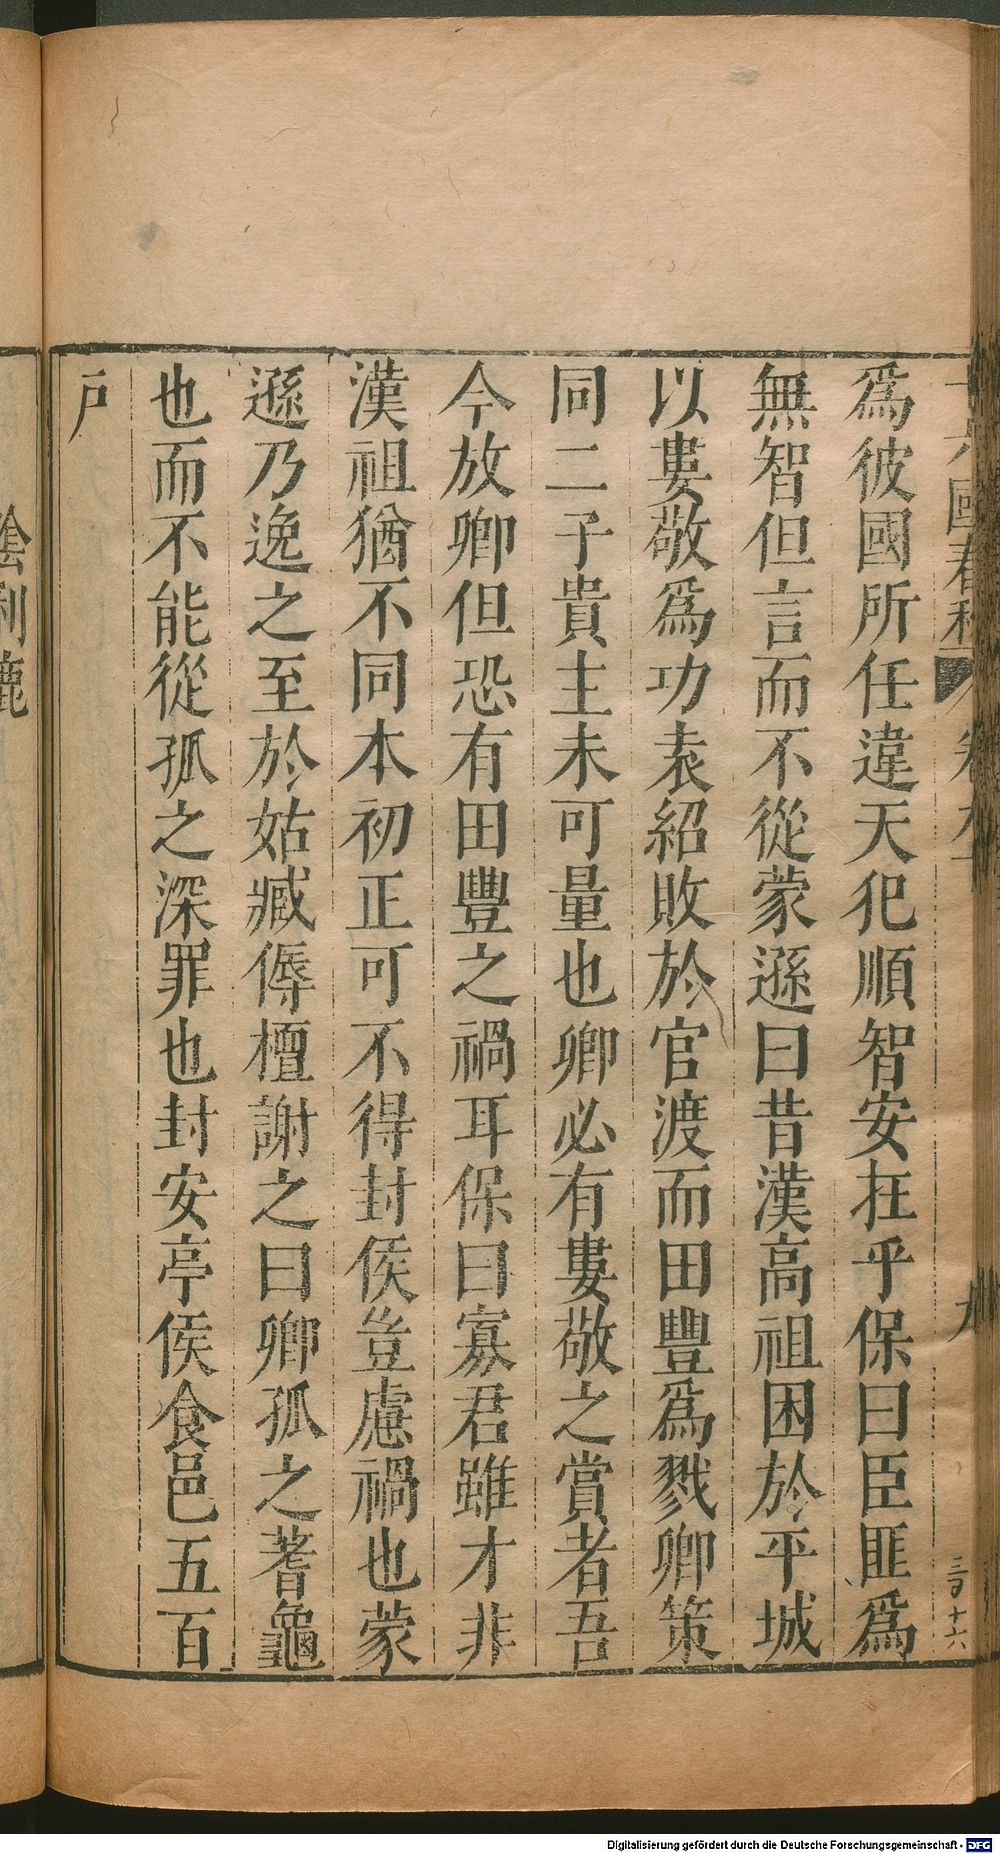 十六國春秋 卷九十 九 三百十六
爲彼國所任違天犯順智安在乎保曰臣匪爲
無智但言而不從蒙遜曰昔漢高祖困於平城
以婁敬爲功袁紹敗於官渡而田豐爲戮卿策
同二子貴主未可量也卿必有婁敬之賞者吾
今放卿但恐有田豐之禍耳保曰寡君雖才非
漢祖猶不同本初正可不得封侯豈慮禍也蒙
遜乃逸之至於姑臧傉檀謝之曰卿孤之蓍龜
也而不能從孤之深罪也封安亭侯食邑五百
戸
陰利鹿
Digitalisierung gefördert durch die Deutsche Forschungsgemeinschaft - DFG